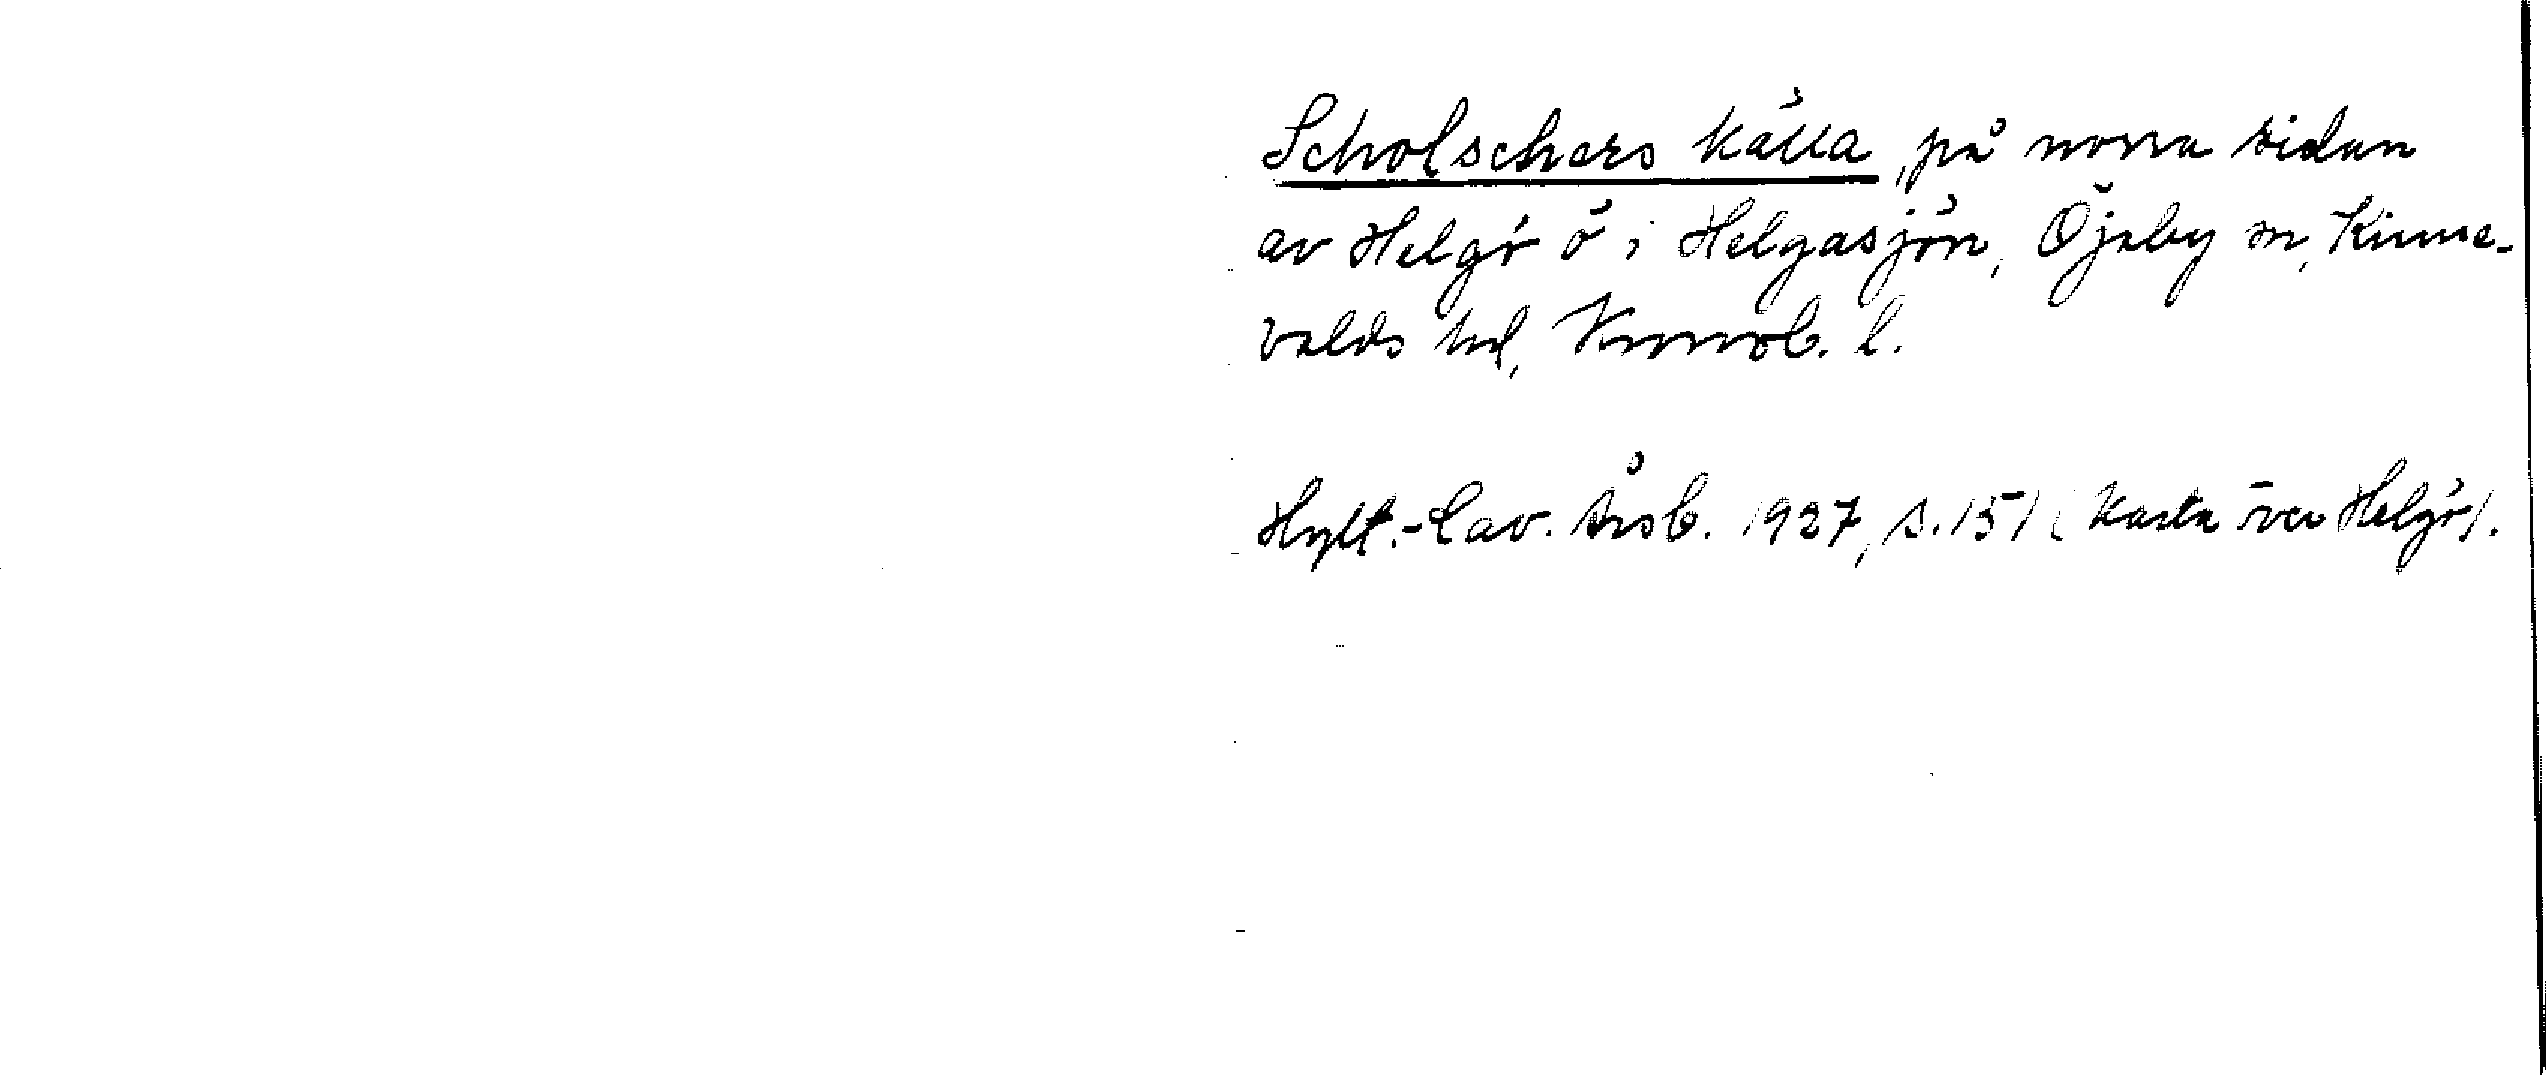 Scholschers källa, på norra sidan
av Helgö ö i Helgasjön, Öjaby sn, Kinne-
valds hd, Kronob. l.
Hylt.-Cav. Årsb. 1927, s. 151 (karta över Helgö).